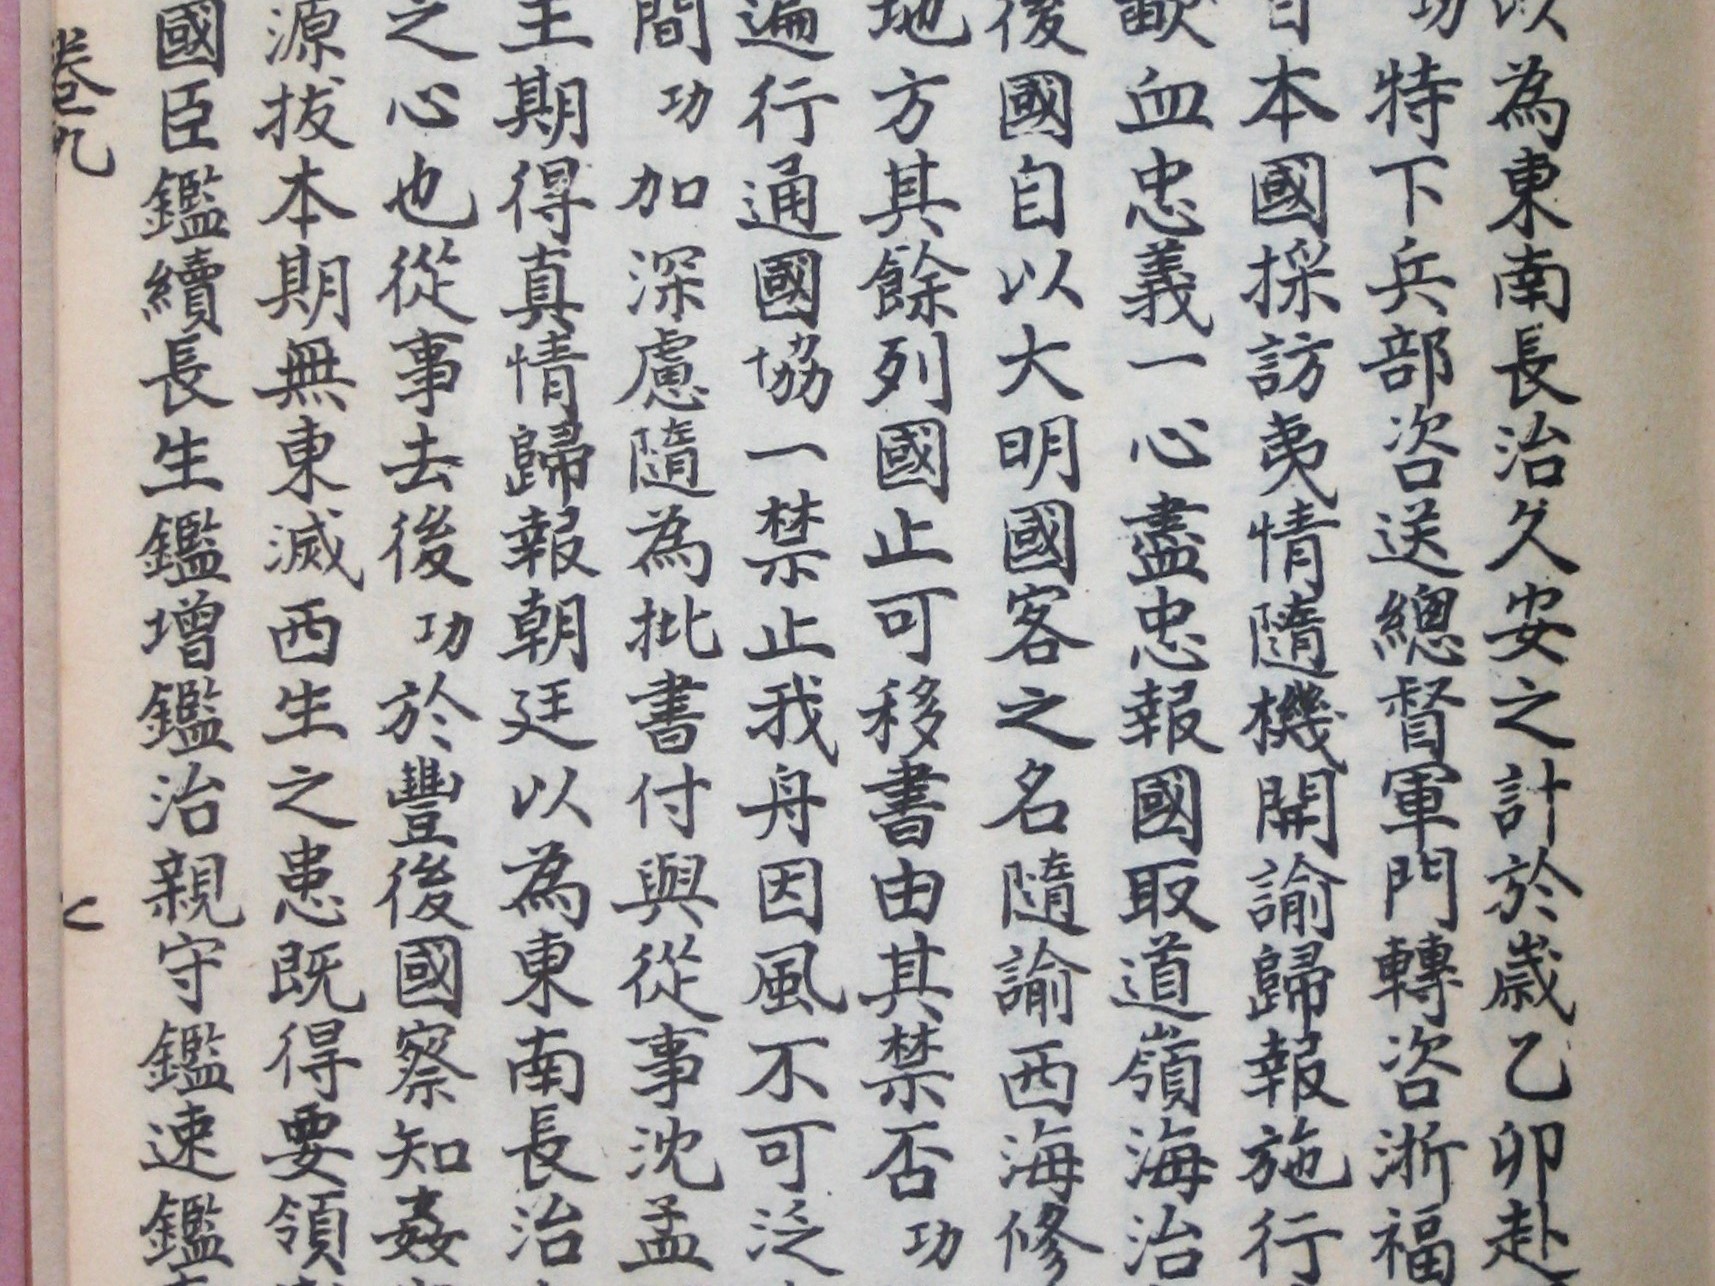 以為東南長治久安之計於歲乙卯赴
功特下兵部咨送總督軍門轉咨浙福
日本國採訪夷情隨機開諭歸報施行
歃血忠義一心盡忠報國取道嶺海治
後國自以大明國客之名隨諭西海修
地方其餘列國止可移書由其禁否功
遍行通國協一禁止我舟因風不可泛
間功加深慮隨為批書付與從事沈孟
王期得真情歸報朝廷以為東南長治
之心也從事去後功於豐後國察知姦
源拔本期無東滅西生之患既得要領
國臣鑑續長生鑑增鑑治親守鑑速鑑
卷九